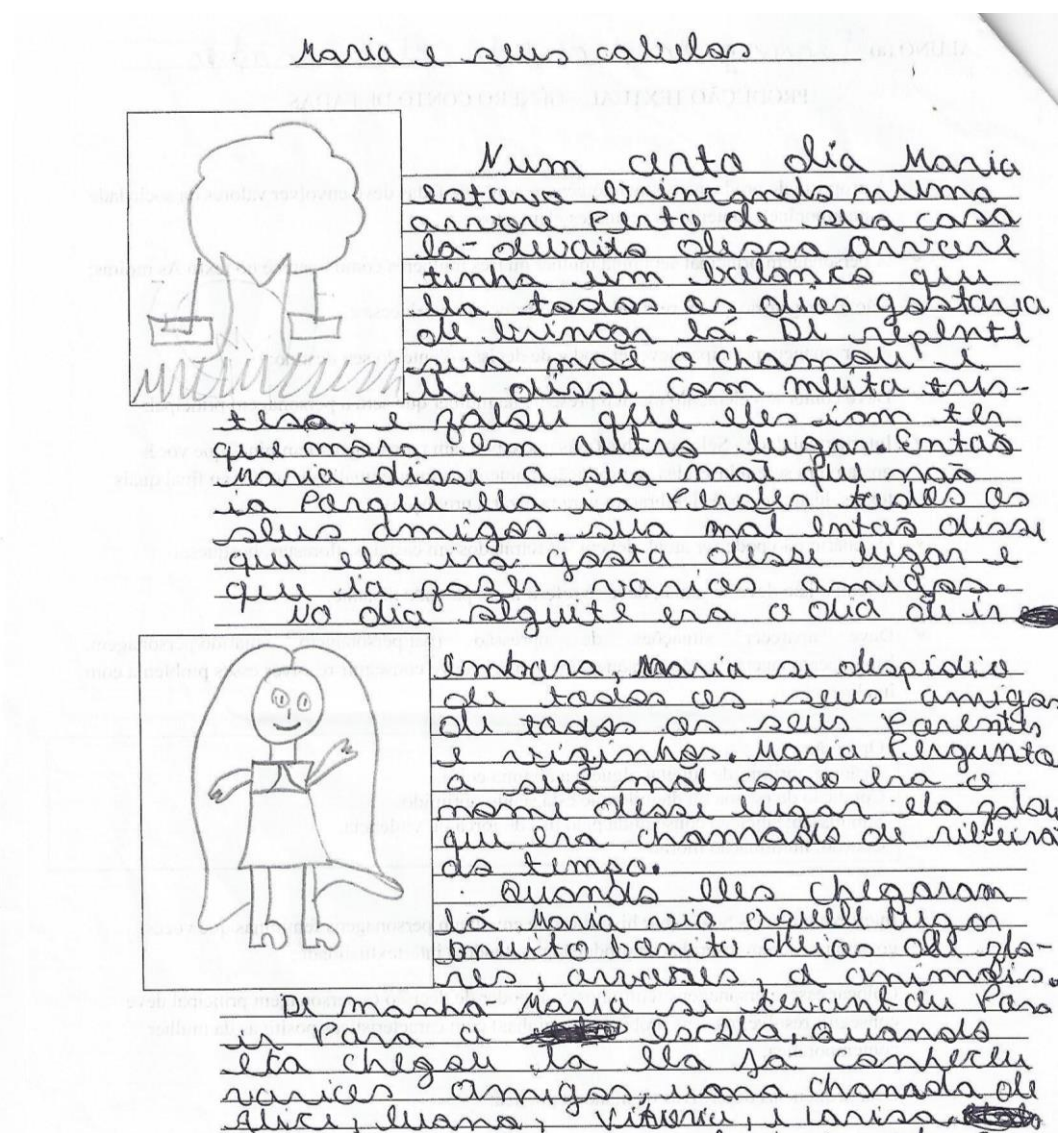 Maria e seus cabelos
Num certo dia Maria
estava brincando numa
arvore perto de sua casa
la-debaito dessa arvore
tinha um balanço que
ela todos os dias gostava
de brincar lá. De repente
sua mãe o chamou e
lhe disse com muita tris-
tesa, e falou que eles iam ter
que morar em outro lugar. Então
Maria disse a sua mãe que não
ia porque ela ia perder todos os
seus amigos, sua mãe então disse
que ela iria gosta desse lugar e
que ia fazer varios amigos.
No dia seguite era o dia de ir
embora Maria si despidiu
de todos os seus amigos
de todos os seus parentes
e vizinhos. Maria pergunta
a sua mãe como e o
nome do lugar e ela falou
que era chamado de ribeira
do tempo.
Quando eles chegaram
lá Maria viu aquele lugar
bonito bonito cheio de flo-
res, arvores e animais.
De manhã Maria si arrumou para
ir para a escola, quando
ela chegou la ela ja conheceu
varios amigos, uma chamada de
Alice, Luana, Vitoria, e Larissa.